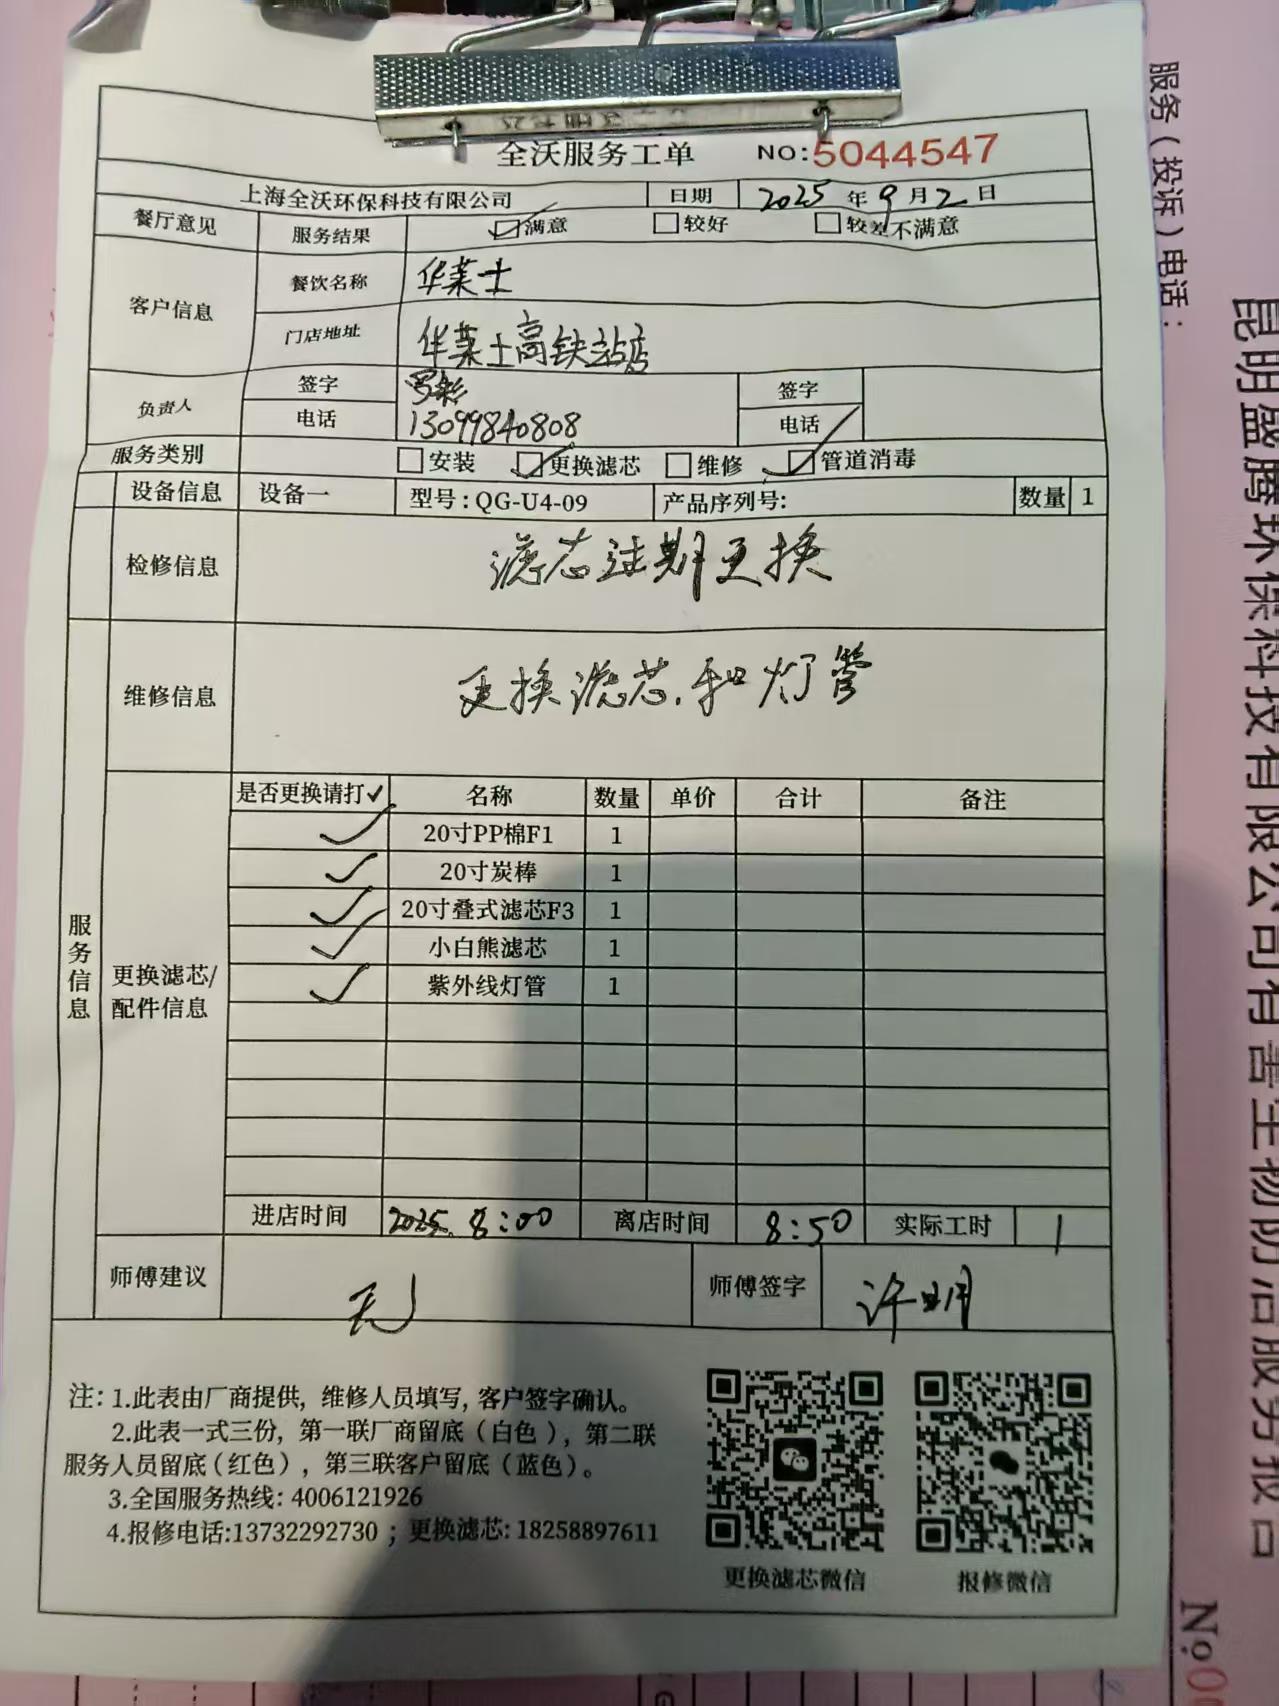 全沃服务工单 NO:5044547
上海全沃环保科技有限公司 日期 2025 年 9 月 2 日
餐厅意见 服务结果 满意 较好 较差不满意
客户信息 餐饮名称 华莱士
门店地址 华莱士高铁站店
负责人 签字 签字
电话 13099840808 电话
服务类别 安装 更换滤芯 维修 管道消毒
设备信息 设备一 型号:QG-U4-09 产品序列号: 数量 1
检修信息 滤芯过期更换
维修信息 更换滤芯.和灯管
服务信息
更换滤芯/配件信息
是否更换请打✓ 名称 数量 单价 合计 备注
✓ 20寸PP棉F1 1
✓ 20寸炭棒 1
✓ 20寸叠式滤芯F3 1
✓ 小白熊滤芯 1
✓ 紫外线灯管 1
进店时间 2025. 8:00 离店时间 8:50 实际工时 1
师傅建议 无 师傅签字 许明
注: 1.此表由厂商提供, 维修人员填写, 客户签字确认。
2.此表一式三份, 第一联厂商留底(白色), 第二联
服务人员留底(红色), 第三联客户留底(蓝色)。
3.全国服务热线: 4006121926
4.报修电话:13732292730 ; 更换滤芯: 18258897611
更换滤芯微信 报修微信
服务(投诉)电话:
昆明盛腾环保科技有限公司有害生物防治服务报告
No0